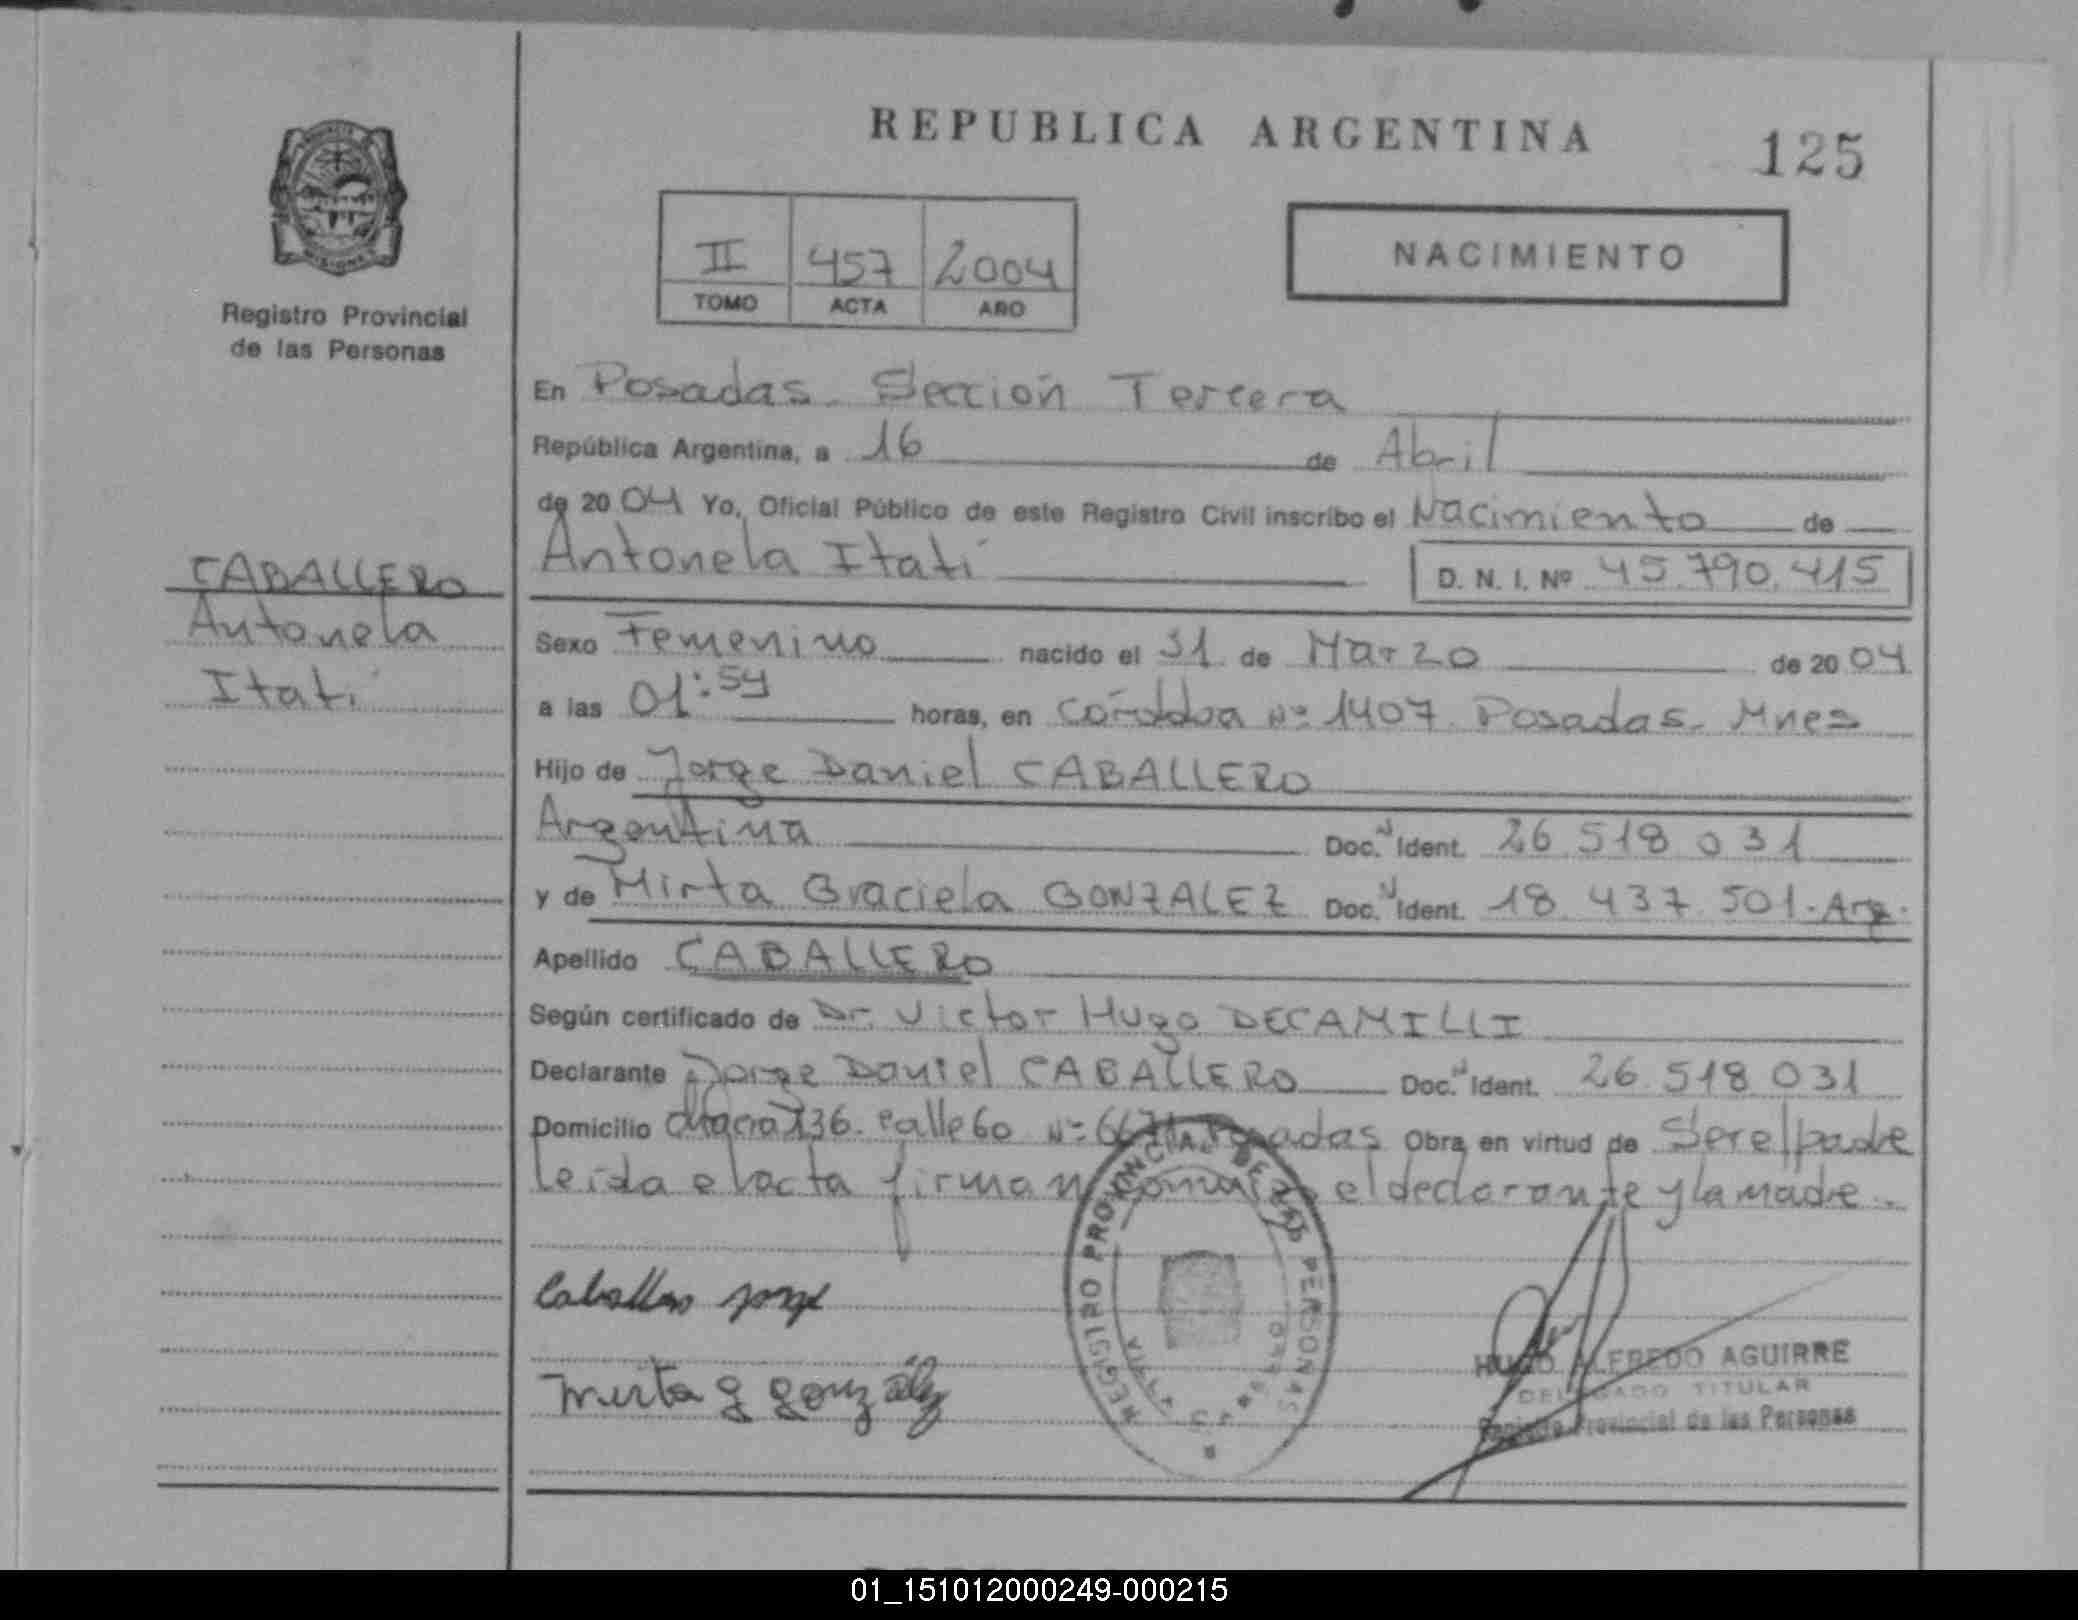 REPUBLICA ARGENTINA
125
II 457 2004
TOMO ACTA AÑO
NACIMIENTO
MISIONES
Registro Provincial
de las Personas
CABALLERO
Antonela
Itatí
En Posadas. Sección Tercera
República Argentina, a 16 de Abril
de 2004 Yo, Oficial Público de este Registro Civil inscribo el Nacimiento de
Antonela Itatí D. N. I. Nº 45.790.415
Sexo Femenino nacido el 31 de Marzo de 2004
a las 01:54 horas, en Córdoba Nº 1407 Posadas. Mnes
Hijo de Jorge Daniel CABALLERO
Argentina Doc. N Ident. 26 518 031
y de Mirta Graciela GONZALEZ Doc. N Ident. 18 437 501. Arg.
Apellido CABALLERO
Según certificado de Dr. Victor Hugo DECAMILLI
Declarante Jorge Daniel CABALLERO Doc. N Ident. 26 518 031
Domicilio 136. calle 60 Nº Posadas Obra en virtud de Ser el padre
leida el acta firman el declarante y la madre.
Caballero Jorge
Mirta G González
REGISTRO PROVINCIAL DE LAS PERSONAS
HUGO ALFREDO AGUIRRE
DELEGADO TITULAR
Registro Provincial de las Personas
01_151012000249-000215